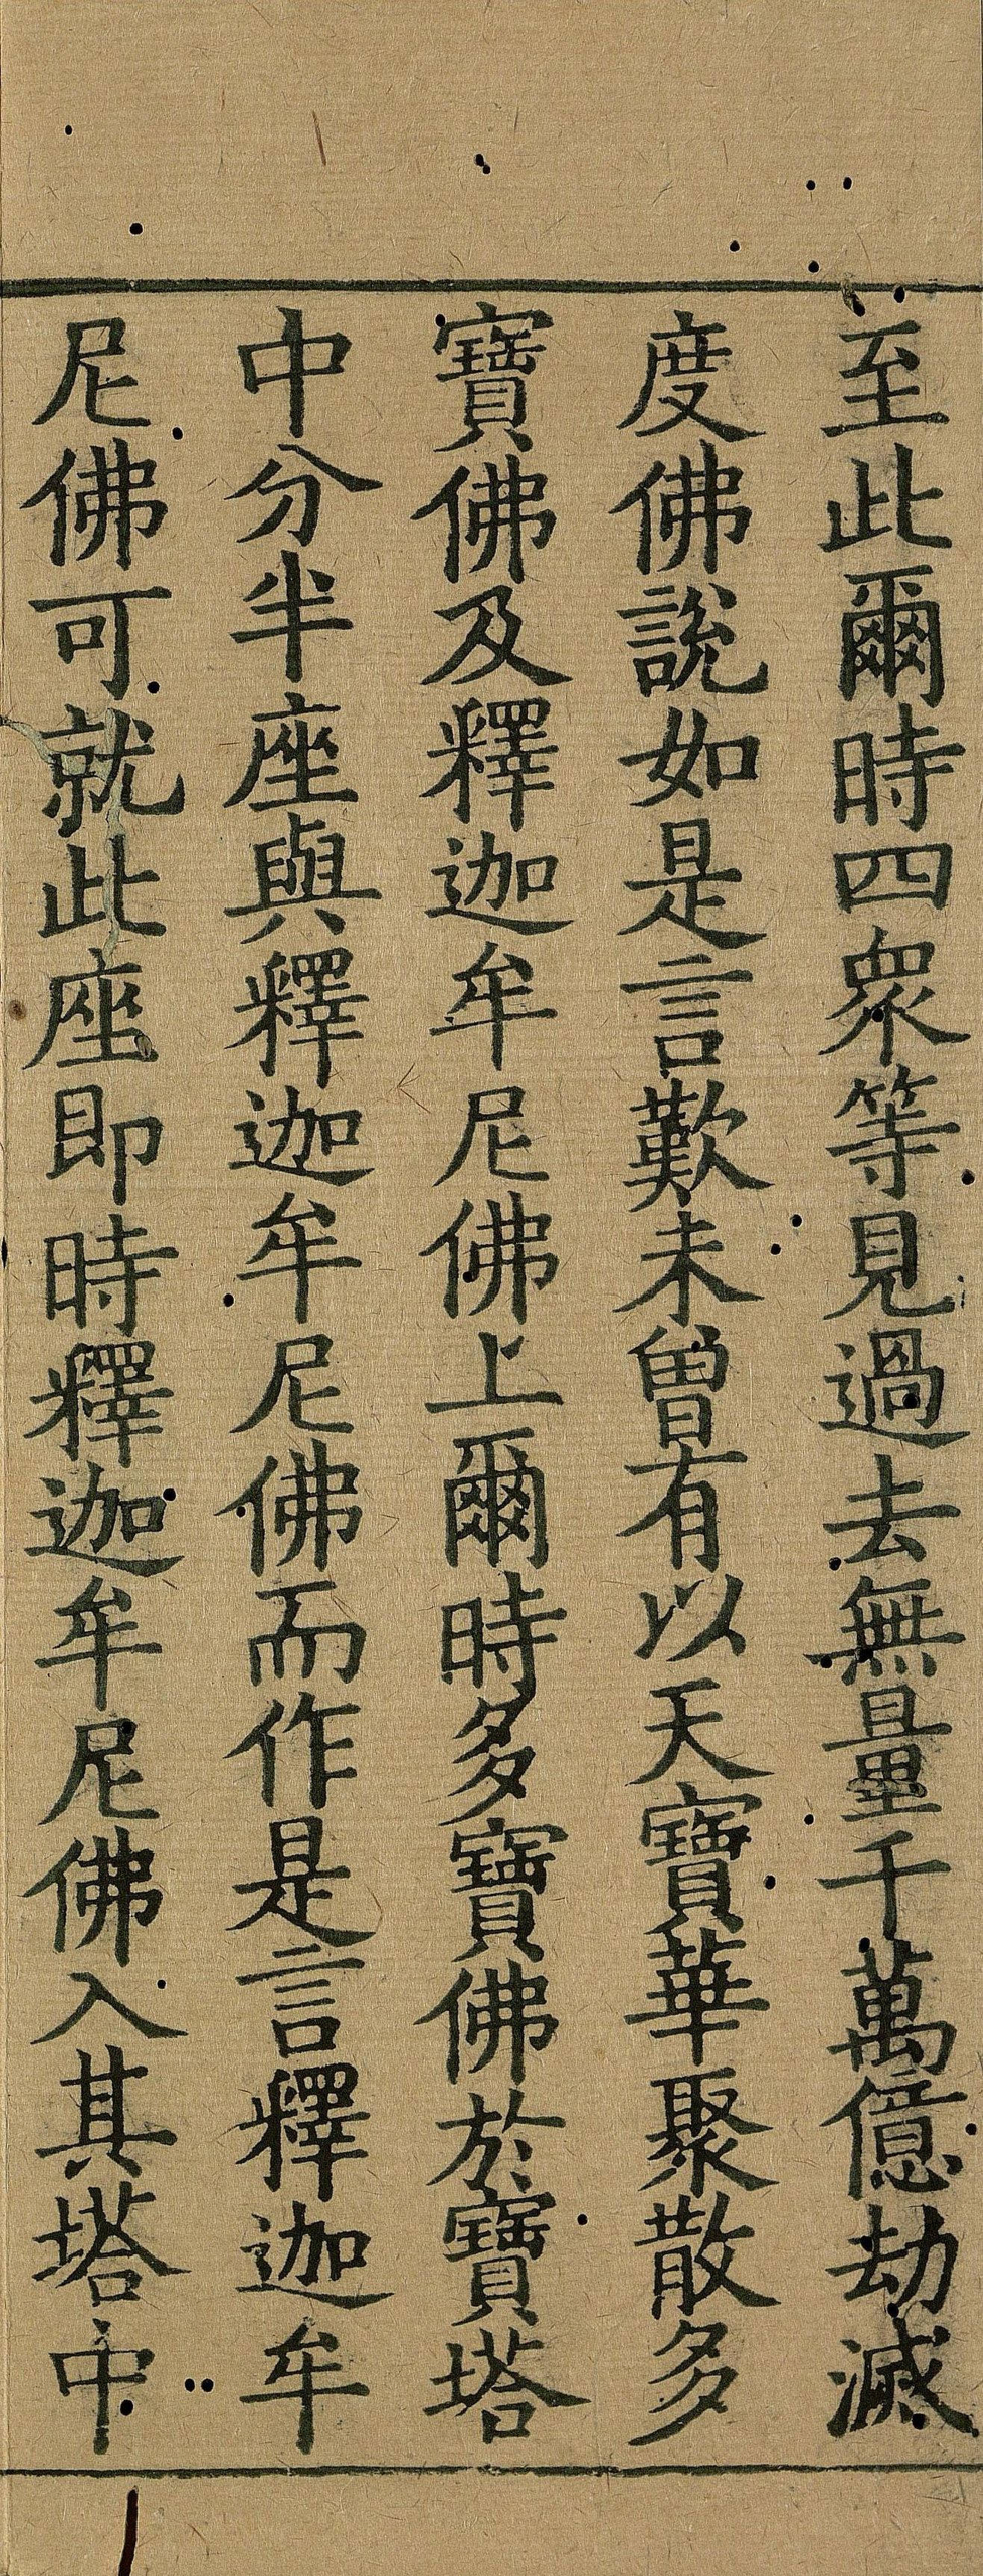 至此爾時四衆等見過去無量千萬億劫滅
度佛說如是言歎未曾有以天寶華聚散多
寶佛及釋迦牟尼佛上爾時多寶佛於寶塔
中分半座與釋迦牟尼佛而作是言釋迦牟
尼佛可就此座即時釋迦牟尼佛入其塔中